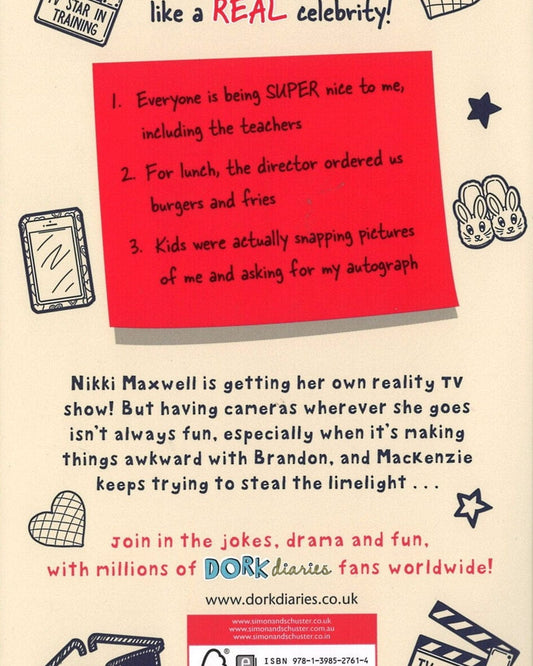 TV STAR IN
TRAINING
like a REAL celebrity!
1. Everyone is being SUPER nice to me,
including the teachers
2. For lunch, the director ordered us
burgers and fries
3. Kids were actually snapping pictures
of me and asking for my autograph
Nikki Maxwell is getting her own reality TV
show! But having cameras wherever she goes
isn't always fun, especially when it's making
things awkward with Brandon, and Mackenzie
keeps trying to steal the limelight . . .
Join in the jokes, drama and fun,
with millions of DORK diaries fans worldwide!
www.dorkdiaries.co.uk
www.simonandschuster.co.uk
www.simonandschuster.com.au
www.simonandschuster.co.in
ISBN 978-1-3985-2761-4